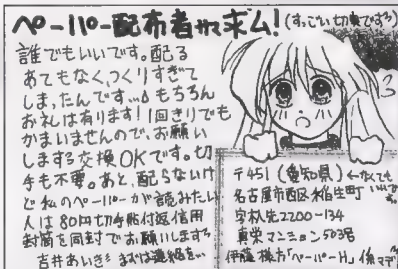 ペーパー配布者サマ求ム!(すっごい切実です)
誰でもいいです。配る
あてもなく、つくりすぎて
しまったんです…もちろん
お礼は有ります!1回きりでも
かまいませんので、お願い
します 交換OKです。切
手も不要。あと、配らないけ
ど私のペーパーが読みたい
人は80円切手貼付返信用
封筒を同封でお願いします
吉井あいき まずは連絡を…
〒451(愛知県)←なくても
いいです。
名古屋市西区稲生町
字杁先2200-134
真栄マンション503号
伊藤様方「ペーパーH」係マデ